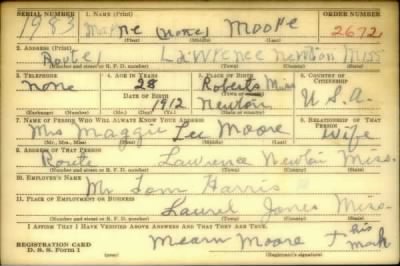 SERIAL NUMBER 1. NAME (Print) ORDER NUMBER
1983 (none) Moore 2672
(First) (Middle) (Last)
2. ADDRESS (Print)
Route 1 Lawrence Newton Miss
(Number and street or R. F. D. number) (Town) (County) (State)
3. TELEPHONE 4. AGE IN YEARS 5. PLACE OF BIRTH 6. COUNTRY OF CITIZENSHIP
none 28 Roberts Miss U.S.A.
DATE OF BIRTH
1912 Newton
(Exchange) (Number) (Mo.) (Day) (Yr.) (State or country)
7. NAME OF PERSON WHO WILL ALWAYS KNOW YOUR ADDRESS 8. RELATIONSHIP OF THAT PERSON
Mrs Maggie Lee Moore Wife
(Mr., Mrs., Miss) (First) (Middle) (Last)
9. ADDRESS OF THAT PERSON
Route Lawrence Newton Miss.
(Number and street or R. F. D. number) (Town) (County) (State)
10. EMPLOYER'S NAME
Mr Tom Harris
11. PLACE OF EMPLOYMENT OR BUSINESS
Laurel Jones Miss.
(Number and street or R. F. D. number) (Town) (County) (State)
I AFFIRM THAT I HAVE VERIFIED ABOVE ANSWERS AND THAT THEY ARE TRUE.
REGISTRATION CARD
D. S. S. Form 1
Mearn Moore his mark
(Registrant's signature)